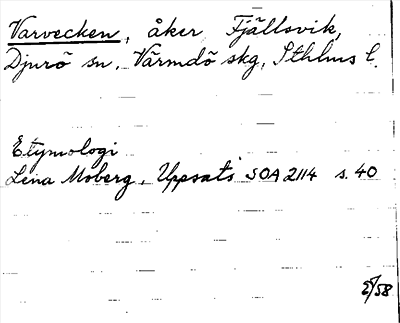 Varvecken, åker, Fjällsvik,
Djurö sn, Värmdö skg, Sthlms l.
Etymologi
Lena Moberg, Uppsats SOA 2114 s. 40